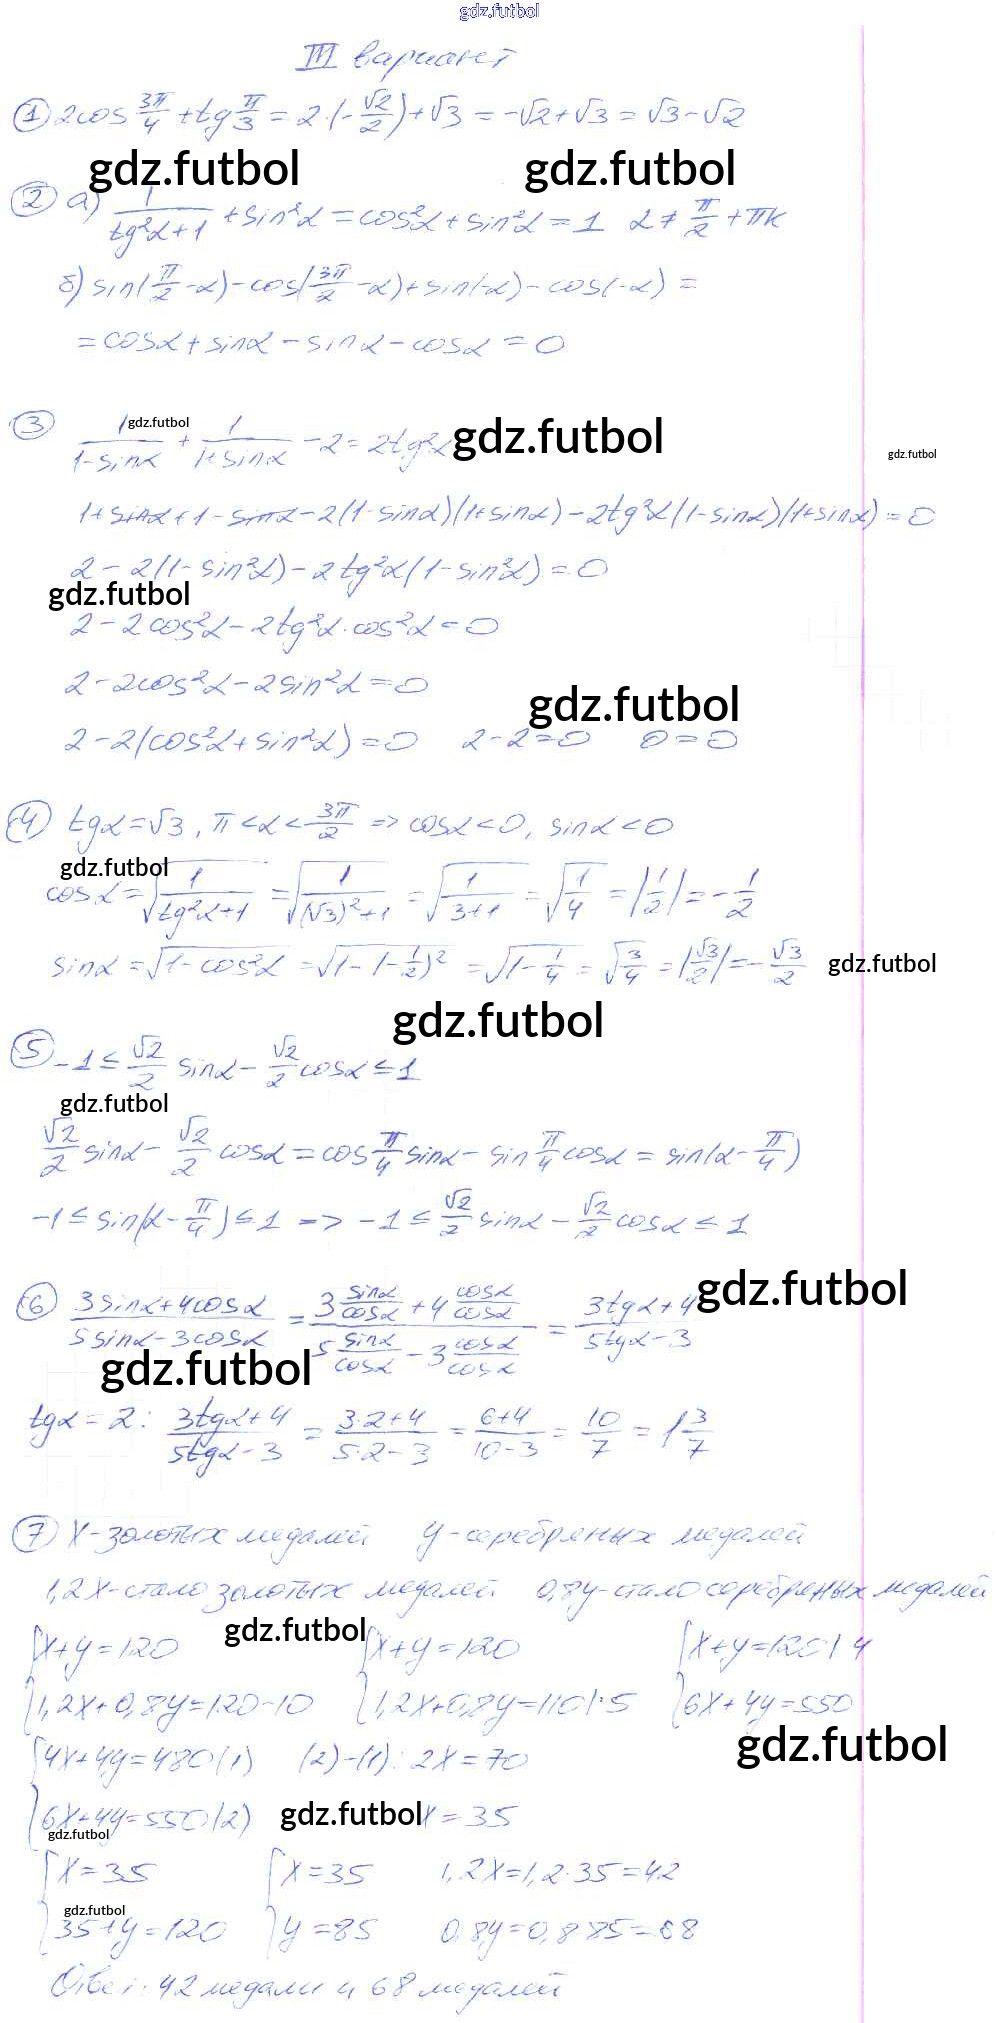 gdz.futbol
III вариант
① 2cos 3π/4 + tg π/3 = 2·(-√2/2) + √3 = -√2 + √3 = √3 - √2
gdz.futbol gdz.futbol
② а) 1/(tg²α+1) + sin²α = cos²α + sin²α = 1 α ≠ π/2 + πk
б) sin(π/2 - α) - cos(3π/2 - α) + sin(-α) - cos(-α) =
= cosα + sinα - sinα - cosα = 0
③ 1/(1-sinα) + 1/(1+sinα) - 2 = 2tg²α
gdz.futbol gdz.futbol gdz.futbol
1+sinα+1-sinα-2(1-sinα)(1+sinα)-2tg²α(1-sinα)(1+sinα)=0
2-2(1-sin²α)-2tg²α(1-sin²α)=0
gdz.futbol
2-2cos²α-2tg²α·cos²α=0
2-2cos²α-2sin²α=0
gdz.futbol
2-2(cos²α+sin²α)=0 2-2=0 0=0
④ tgα=√3, π<α<3π/2 => cosα<0, sinα<0
gdz.futbol
cosα = √(1/(tg²α+1)) = √(1/((√3)²+1)) = √(1/(3+1)) = √(1/4) = |1/2| = -1/2
sinα = √(1-cos²α) = √(1-(-1/2)²) = √(1-1/4) = √(3/4) = |√3/2| = -√3/2 gdz.futbol
gdz.futbol
⑤ -1 ≤ √2/2 sinα - √2/2 cosα ≤ 1
gdz.futbol
√2/2 sinα - √2/2 cosα = cos π/4 sinα - sin π/4 cosα = sin(α - π/4)
-1 ≤ sin(α - π/4) ≤ 1 => -1 ≤ √2/2 sinα - √2/2 cosα ≤ 1
⑥ (3sinα+4cosα)/(5sinα-3cosα) = (3 sinα/cosα + 4 cosα/cosα)/(5 sinα/cosα - 3 cosα/cosα) = (3tgα+4)/(5tgα-3)
gdz.futbol
gdz.futbol
tgα = 2: (3tgα+4)/(5tgα-3) = (3·2+4)/(5·2-3) = (6+4)/(10-3) = 10/7 = 1 3/7
⑦ X-золотых медалей y-серебреных медалей
1,2X-стало золотых медалей 0,8y-стало серебреных медалей
gdz.futbol
{X+y=120 {X+y=120 {X+y=120|·4
{1,2X+0,8y=120-10 {1,2X+0,8y=110|·5 {6X+4y=550
gdz.futbol
{4X+4y=480 (1) (2)-(1): 2X=70
{6X+4y=550 (2) gdz.futbol X=35
gdz.futbol
{X=35 {X=35 1,2X=1,2·35=42
gdz.futbol
{35+y=120 {y=85 0,8y=0,8·85=68
Ответ: 42 медали и 68 медалей